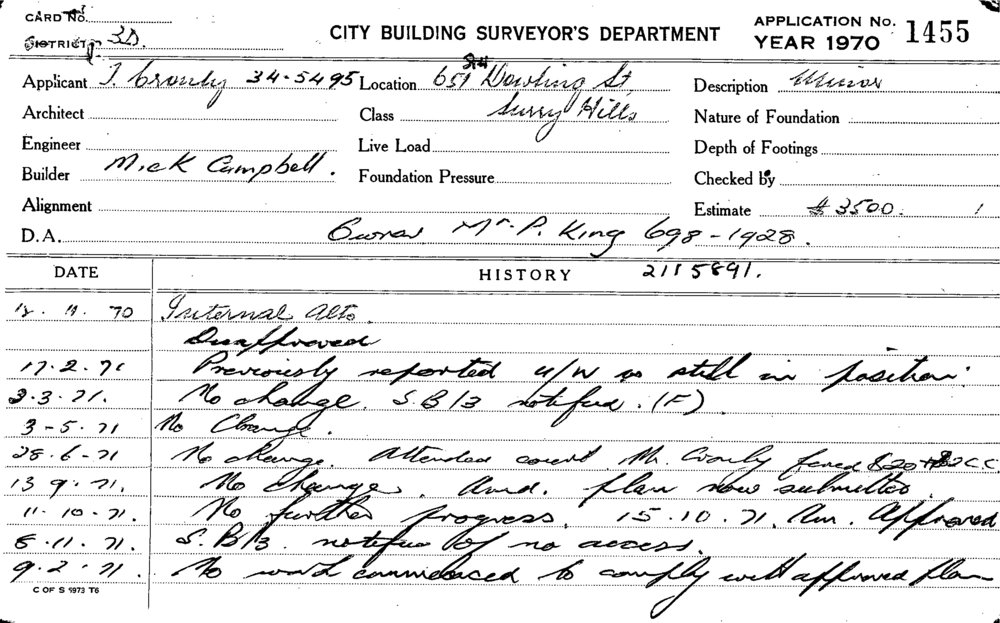 CARD No.
CITY BUILDING SURVEYOR'S DEPARTMENT
APPLICATION No. 1455
DISTRICT 3D
YEAR 1970
Applicant T. Cronly 34-5495 Location 651 Dowling St, Description Minor
Architect Class Surry Hills Nature of Foundation
Engineer Live Load Depth of Footings
Builder Mick Campbell. Foundation Pressure Checked by
Alignment Estimate $3500.
D.A. Owner Mr. P. King 698-1928.
DATE HISTORY 2115891.
11. 70 Internal Alts.
Disapproved
17.2.71 Previously reported u/w is still in position.
3.71. No change. S.B/3 notified. (F)
3-5.71 No Change.
28.6-71 No change. Attended court Mr. Cronly fined $20 + $2 C.C.
13 9.71. No Change. Amd. plan now submitted.
11.10.71. No further progress. 15.10.71. Am. Approved
8.11.71. S.B/3. notified of no access.
9.2.71. No work commenced to comply with approved plan
C OF S 5973 T6